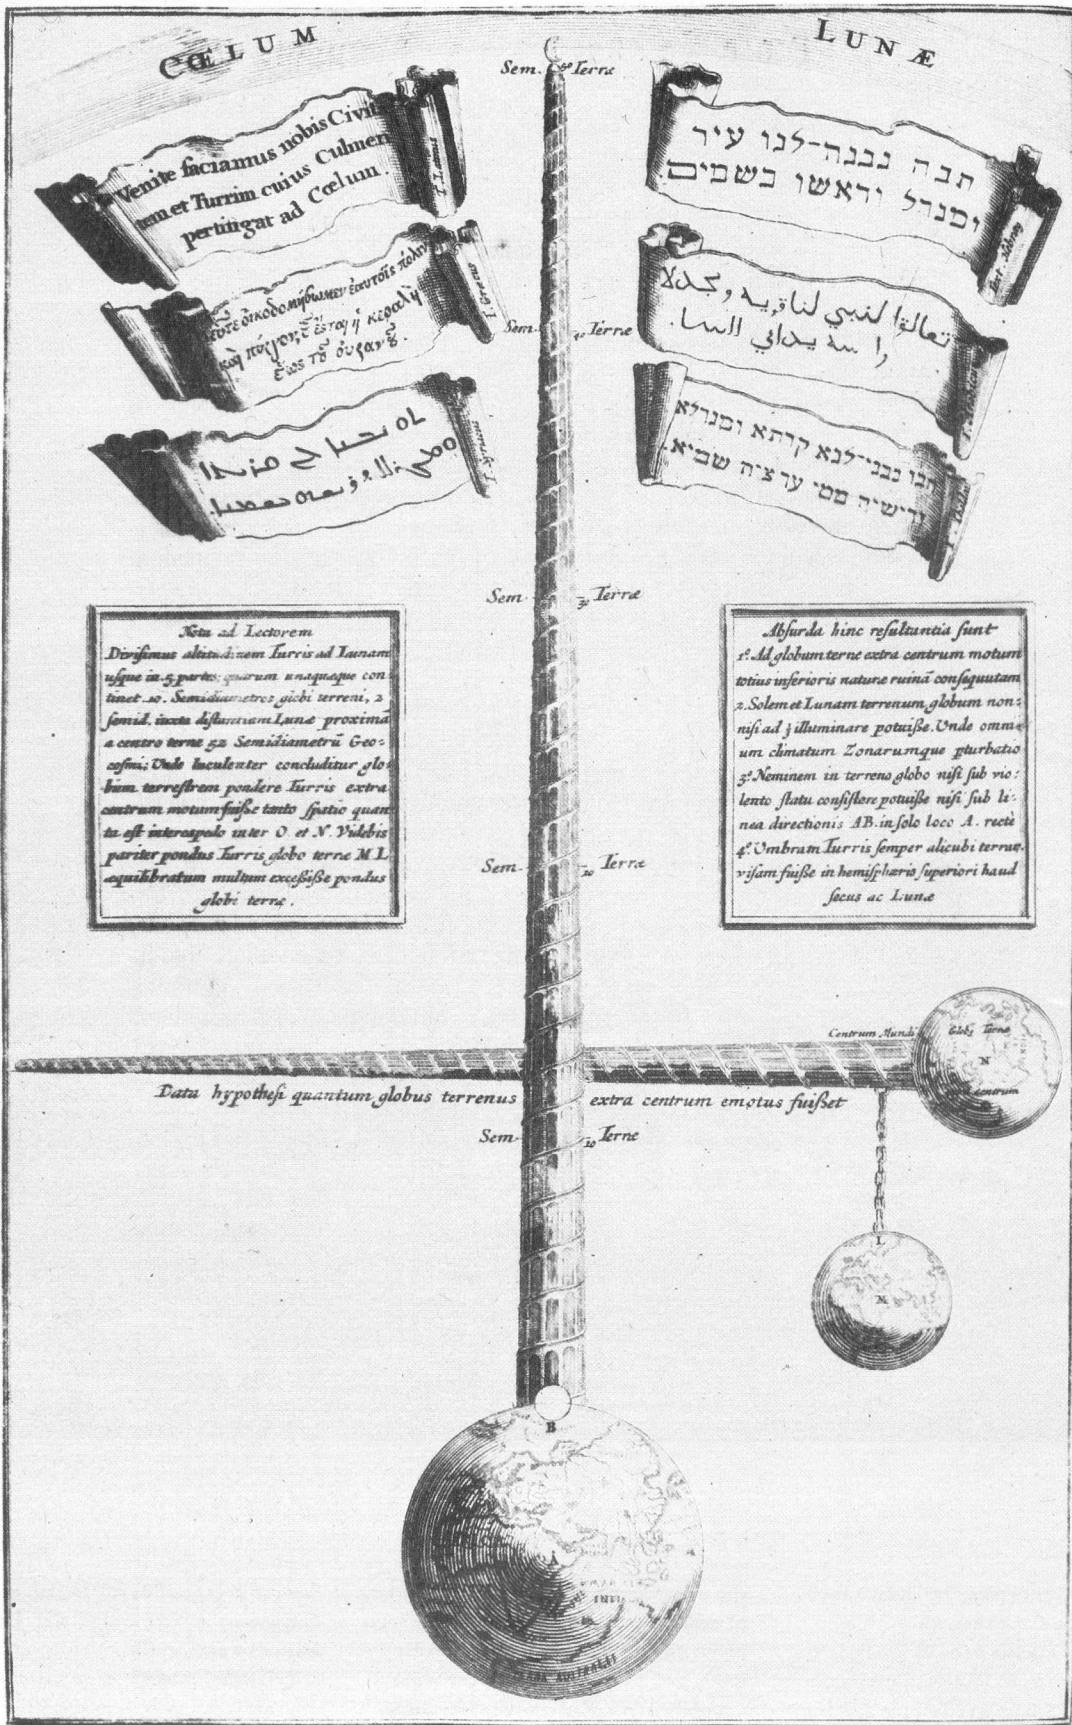 CŒLUM LUNÆ
Sem. 50 Terræ
Venite faciamus nobis Civit
tem et Turrim cuius Culmen
pertingat ad Cœlum.
הבה נבנה־לנו עיר
ומגדל וראשו בשמים.
καὶ πύργον, ἔσται ἡ κεφαλὴ
ἕως τοῦ οὐρανοῦ.
تعالوا لنبني لنا قريه و مجدلا
Sem. 40 Terræ
הבו נבני־לנא קרתא ומגדלא
ורישיה מטי עד ציה שמיא.
Sem. 30 Terræ
Nota ad Lectorem
Divisimus altitudinem Turris ad Lunam
usque in 5 partes, quarum unaquæque con
tinet 10. Semidiametros globi terreni, 2
semid. iuxta distantiam Lunæ proximā
a centro terræ 52 Semidiametrū Geo:
cosmi; Unde luculenter concluditur glo
bum terrestrem pondere Turris extra
centrum motum fuiße tanto spatio quan
ta est intercapedo inter O et N. Videbis
pariter pondus Turris globo terræ M L
æquilibratum multum exceßiße pondus
globi terræ.
Absurda hinc resultantia sunt
1.º Ad globum terræ extra centrum motum
totius inferioris naturæ ruinā consequutam
2. Solem et Lunam terrenum globum non:
nisi ad ⅓ illuminare potuiße. Unde omni:
um climatum Zonarumque pturbatio
3.º Neminem in terreno globo nisi sub vio:
lento statu consistere potuiße nisi sub li:
nea directionis AB. in solo loco A. rectè
4.º Umbram Turris semper alicubi terrar.
visam fuiße in hemisphærio superiori haud
secus ac Lunæ
Sem. 20 Terræ
Centrum Mundi
Globꝰ Terræ
N
centrum
Data hypothesi quantum globus terrenus extra centrum emotus fuißet
Sem. 10 Terræ
L
M
B
A